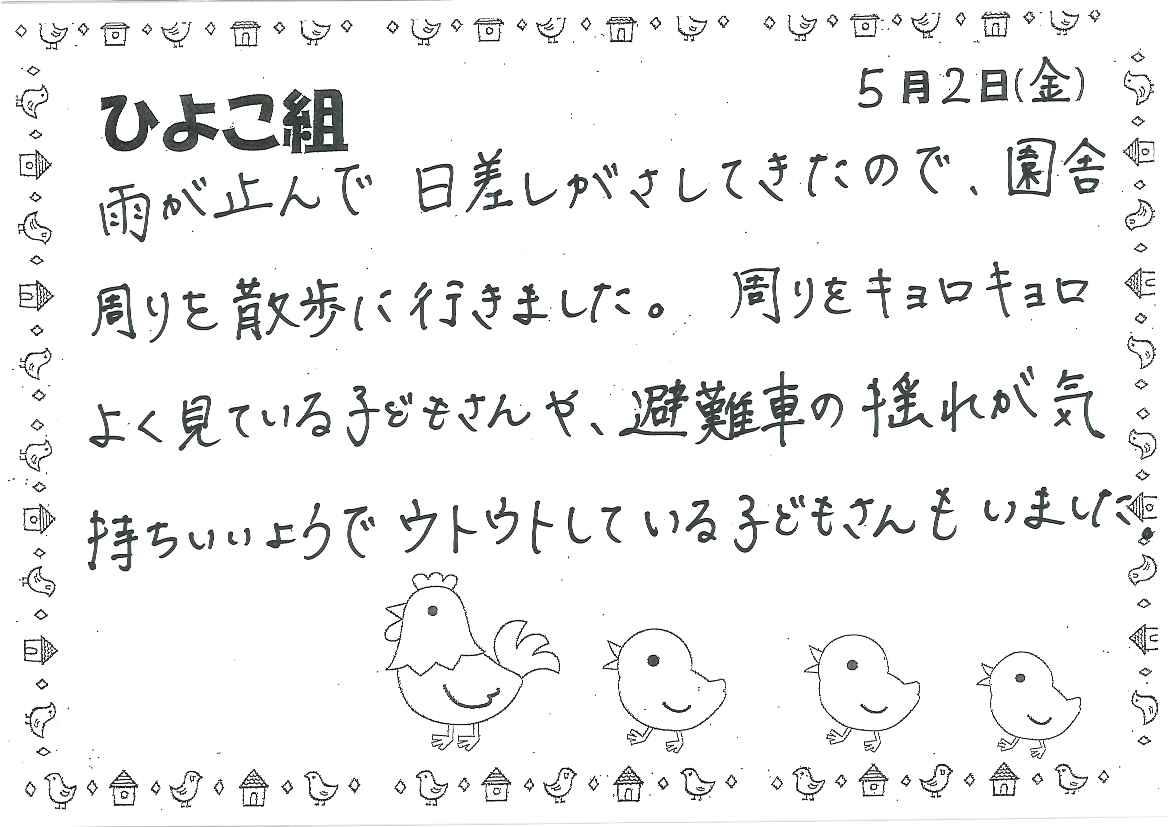 5月2日(金)
ひよこ組
雨が止んで 日差しがさしてきたので、園舎
周りを散歩に行きました。 周りをキョロキョロ
よく見ている子どもさんや、避難車の揺れが気
持ちいいようでウトウトしている子どもさんもいました。